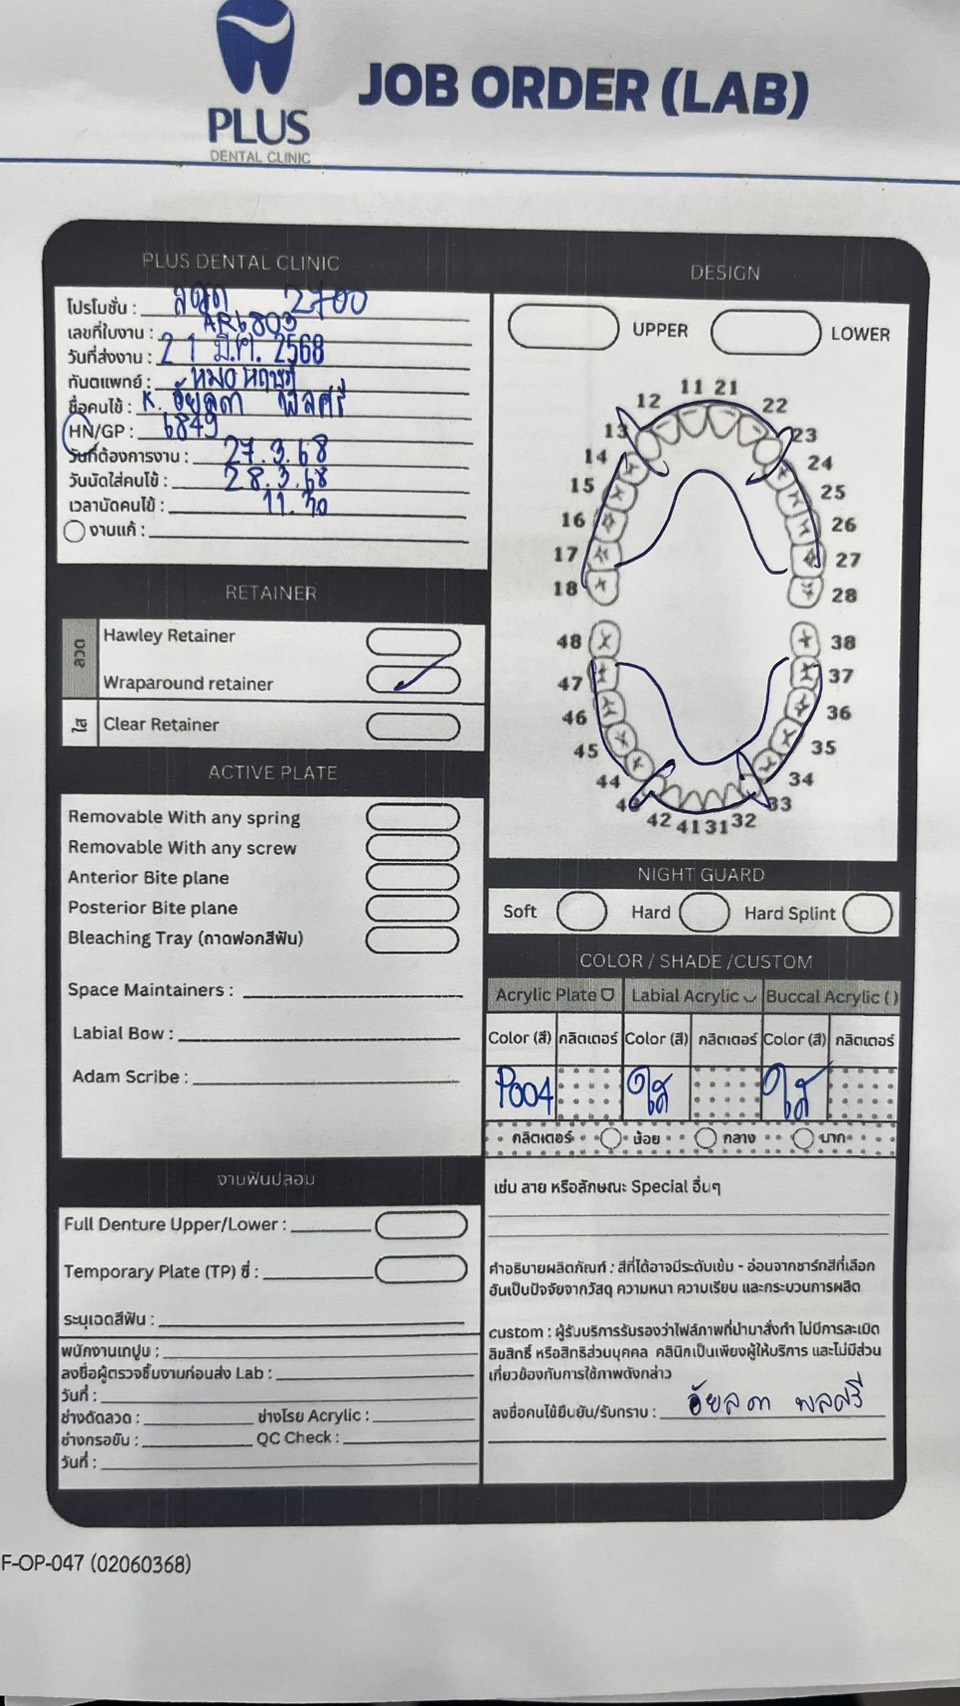 PLUS
DENTAL CLINIC
JOB ORDER (LAB)
PLUS DENTAL CLINIC
โปรโมชั่น : 2700
เลขที่ใบงาน : AR6803
วันที่ส่งงาน : 21 มี.ค. 2568
ทันตแพทย์ : หมอ
ชื่อคนไข้ : K. อัยลดา พลศรี
HN/GP : 6849
วันที่ต้องการงาน : 27.3.68
วันนัดใส่คนไข้ : 28.3.68
เวลานัดคนไข้ : 11.30
งานแก้ :
RETAINER
ลวด
Hawley Retainer
Wraparound retainer
ใส
Clear Retainer
ACTIVE PLATE
Removable With any spring
Removable With any screw
Anterior Bite plane
Posterior Bite plane
Bleaching Tray (ถาดฟอกสีฟัน)
Space Maintainers :
Labial Bow :
Adam Scribe :
งานฟันปลอม
Full Denture Upper/Lower :
Temporary Plate (TP) ซี่ :
ระบุเฉดสีฟัน :
พนักงานเทปูน :
ลงชื่อผู้ตรวจชิ้นงานก่อนส่ง Lab :
วันที่ :
ช่างดัดลวด : ช่างโรย Acrylic :
ช่างกรอขัน : QC Check :
วันที่ :
DESIGN
UPPER LOWER
11 21
12 22
13 23
14 24
15 25
16 26
17 27
18 28
48 38
47 37
46 36
45 35
44 34
43 33
42 41 31 32
NIGHT GUARD
Soft Hard Hard Splint
COLOR / SHADE /CUSTOM
Acrylic Plate Labial Acrylic Buccal Acrylic ( )
Color (สี) กลิตเตอร์ Color (สี) กลิตเตอร์ Color (สี) กลิตเตอร์
P004 ใส ใส
กลิตเตอร์ น้อย กลาง มาก
เช่น ลาย หรือลักษณะ Special อื่นๆ
คำอธิบายผลิตภัณฑ์ : สีที่ได้อาจมีระดับเข้ม - อ่อนจากชาร์ทสีที่เลือก
อันเป็นปัจจัยจากวัสดุ ความหนา ความเรียบ และกระบวนการผลิต
custom : ผู้รับบริการรับรองว่าไฟล์ภาพที่นำมาสั่งทำ ไม่มีการละเมิด
ลิขสิทธิ์ หรือสิทธิส่วนบุคคล คลินิกเป็นเพียงผู้ให้บริการ และไม่มีส่วน
เกี่ยวข้องกับการใช้ภาพดังกล่าว
ลงชื่อคนไข้ยืนยัน/รับทราบ : อัยลดา พลศรี
F-OP-047 (02060368)